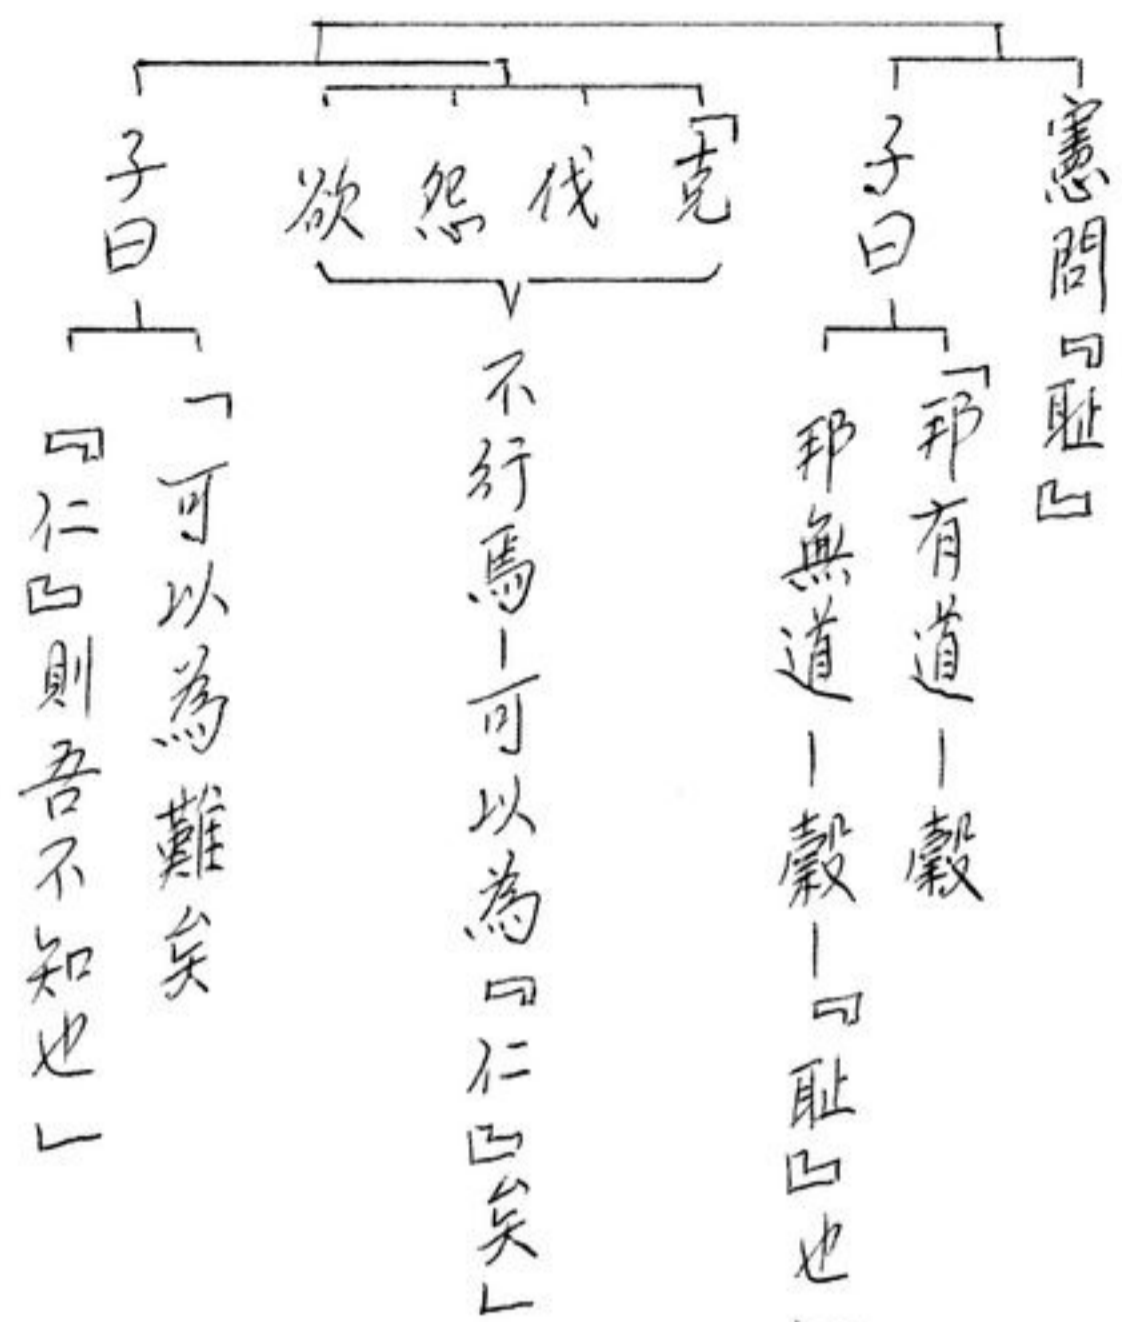 憲問『恥』
子曰
「邦有道－穀
邦無道－穀－『恥』也
「克
伐
怨
欲
不行焉－可以為『仁』矣」
子曰
「可以為難矣
『仁』則吾不知也」